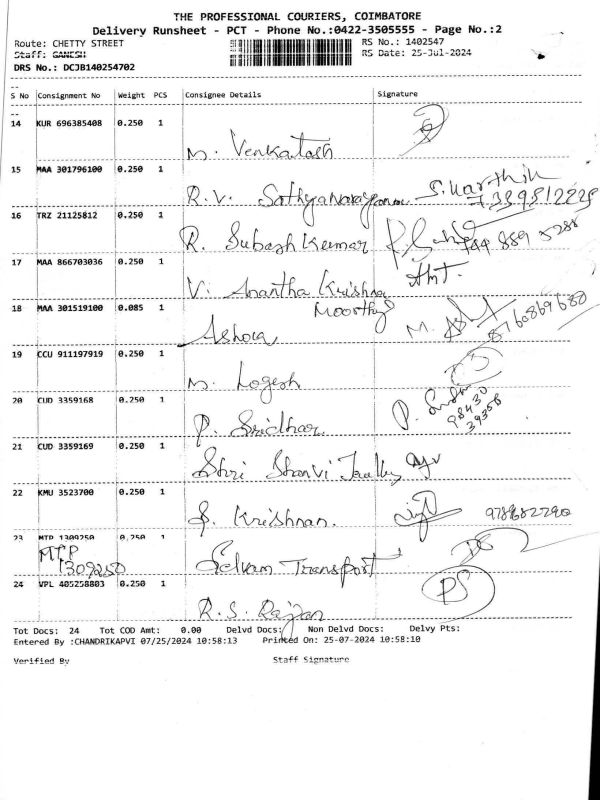 THE PROFESSIONAL COURIERS, COIMBATORE
Delivery Runsheet - PCT - Phone No.:0422-3505555 - Page No.:2
Route: CHETTY STREET RS No.: 1402547
Staff: GANESH RS Date: 25-Jul-2024
DRS No.: DCJB140254702
S No Consignment No Weight PCS Consignee Details Signature
14 KUR 696385408 0.250 1
M. Venkatash
15 MAA 301796100 0.250 1
R.V. Sathyanarayanan S. Karthik
16 TRZ 21125812 0.250 1
R. Subash Kumar
17 MAA 866703036 0.250 1
V. Anantha Krishna
Moorthy
18 MAA 301519100 0.085 1
Ashoka M. 8760869680
19 CCU 911197919 0.250 1
M. Logesh
20 CUD 3359168 0.250 1
P. Sridhar P. 98430
39358
21 CUD 3359169 0.250 1
Shri Shanvi
22 KMU 3523700 0.250 1
S. Krishnan. 9789682790
23 MTP 1309250 0.250 1
MTP
1309250 Selvam Transport
24 VPL 405258803 0.250 1 PS
R.S. Rajan
Tot Docs: 24 Tot COD Amt: 0.00 Delvd Docs: Non Delvd Docs: Delvy Pts:
Entered By :CHANDRIKAPVI 07/25/2024 10:58:13 Printed On: 25-07-2024 10:58:10
Verified By Staff Signature